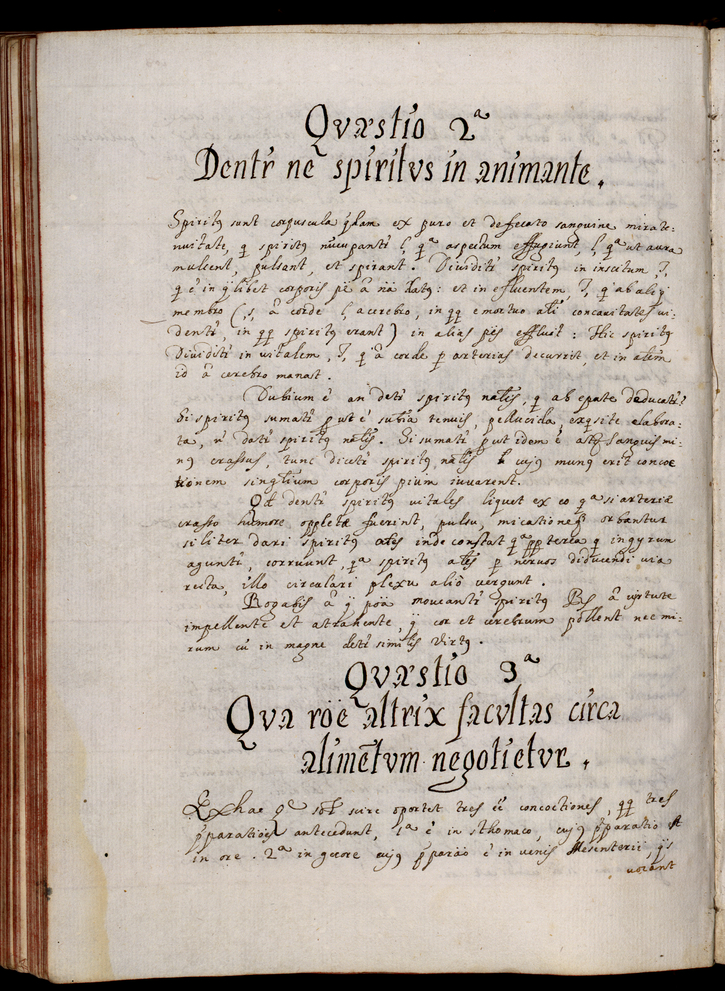 Qvæstio 2ª
Dentr ne spiritvs in animante.
Spiritꝰ sunt corpuscula qdam ex puro et defecato sanguine mirate:
nuitate, q spiritꝰ nũcupantr l, qª aspectum effugiunt, l, qª ut aura
mulcent, pulsant, et spirant. Diuiditr spiritꝰ in insitum, ?,
q ẽ in qlibet corporis pe à nã datꝰ: et in efluentem, ?, q ab aliq
membro (s, à corde l, a cerebro, in qq emortuo ali concauitates ui:
dentr in qq spiritꝰ erant) in alias pes effluit: Hic spiritꝰ
Diuiditr in uitalem, ?, q à corde p arterias decurrit, et in alem
id à cerebro manat.
Dubium ẽ an detr spiritꝰ nalis, q ab epate deducatr?
Si spiritꝰ sumatr put ẽ subia tenuis, pellucida, exqsite elabora:
ta, ñ datr spiritꝰ nalis. Si sumatr put idem ẽ atq sanguis mi:
nꝰ crassus, tunc dicetr spiritꝰ nalis cujꝰ munꝰ erit concoc
tionem singlium corporis pium iuuarent.
Qd dentr spiritꝰ uitales liquet ex eo qª si arteriæ
crasso humore oppletæ fuerint, pulsu, micationeq orbantur
siliter dari spiritꝰ ales inde constat qª ppterea q in gyrum
aguntr, corruunt, qª spiritꝰ ales p neruos diducendi uia
recta, illo circulari plexu aliò uergunt.
Rogabis à q poä moueantr spiritꝰ Rs à uirtute
impellente et attrahente, q cor et cerebrum pollent nec mi:
rum cũ in magne detr similis uirtꝰ.
Qvæstio 3ª
Qva röe altrix facvltas circa
alimẽtvm negotietvr.
Ex hac qe scire oportet tres ẽe concoctiones, qq tres
pparatiões antecedunt, 1ª ẽ in sthomaco, cujꝰ pparatio fit
in ore. 2ª in gecore cujꝰ pparäo ẽ in venis Mesenterii, qs
uocant